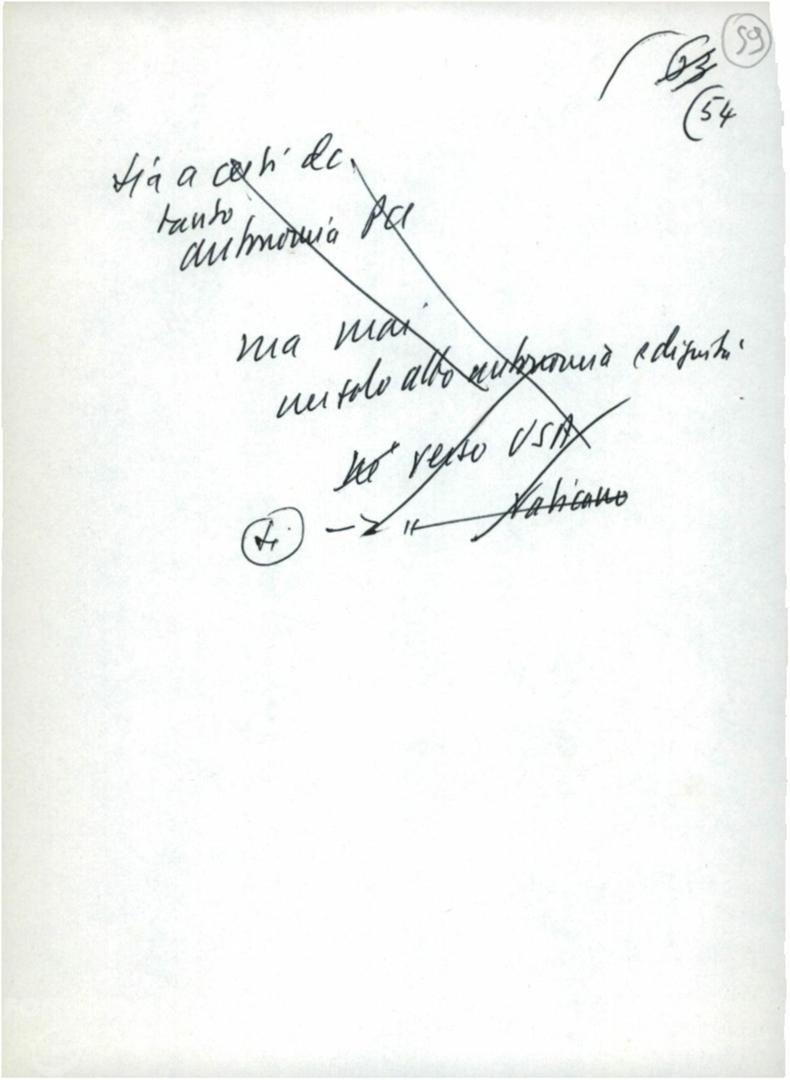 59
63
(54
sia a certi dc
tanto
autonomia PCI
ma mai
un solo atto autonomia e dignità
né verso USA
" Vaticano